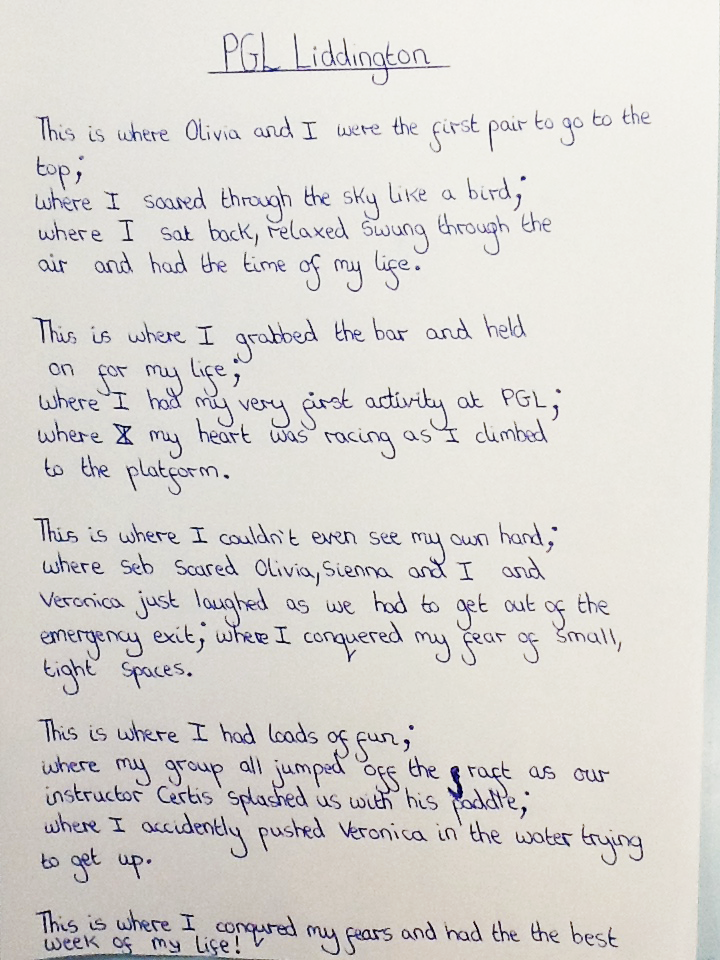 PGL Liddington
This is where Olivia and I were the first pair to go to the
top;
where I soared through the sky like a bird;
where I sat back, relaxed swung through the
air and had the time of my life.
This is where I grabbed the bar and held
on for my life;
where I had my very first activity at PGL;
where my heart was racing as I climbed
to the platform.
This is where I couldn't even see my own hand;
where Seb scared Olivia, Sienna and I and
Veronica just laughed as we had to get out of the
emergency exit; where I conquered my fear of small,
tight spaces.
This is where I had loads of fun;
where my group all jumped off the raft as our
instructor Certis splashed us with his paddle;
where I accidently pushed Veronica in the water trying
to get up.
This is where I conqured my fears and had the the best
week of my life!